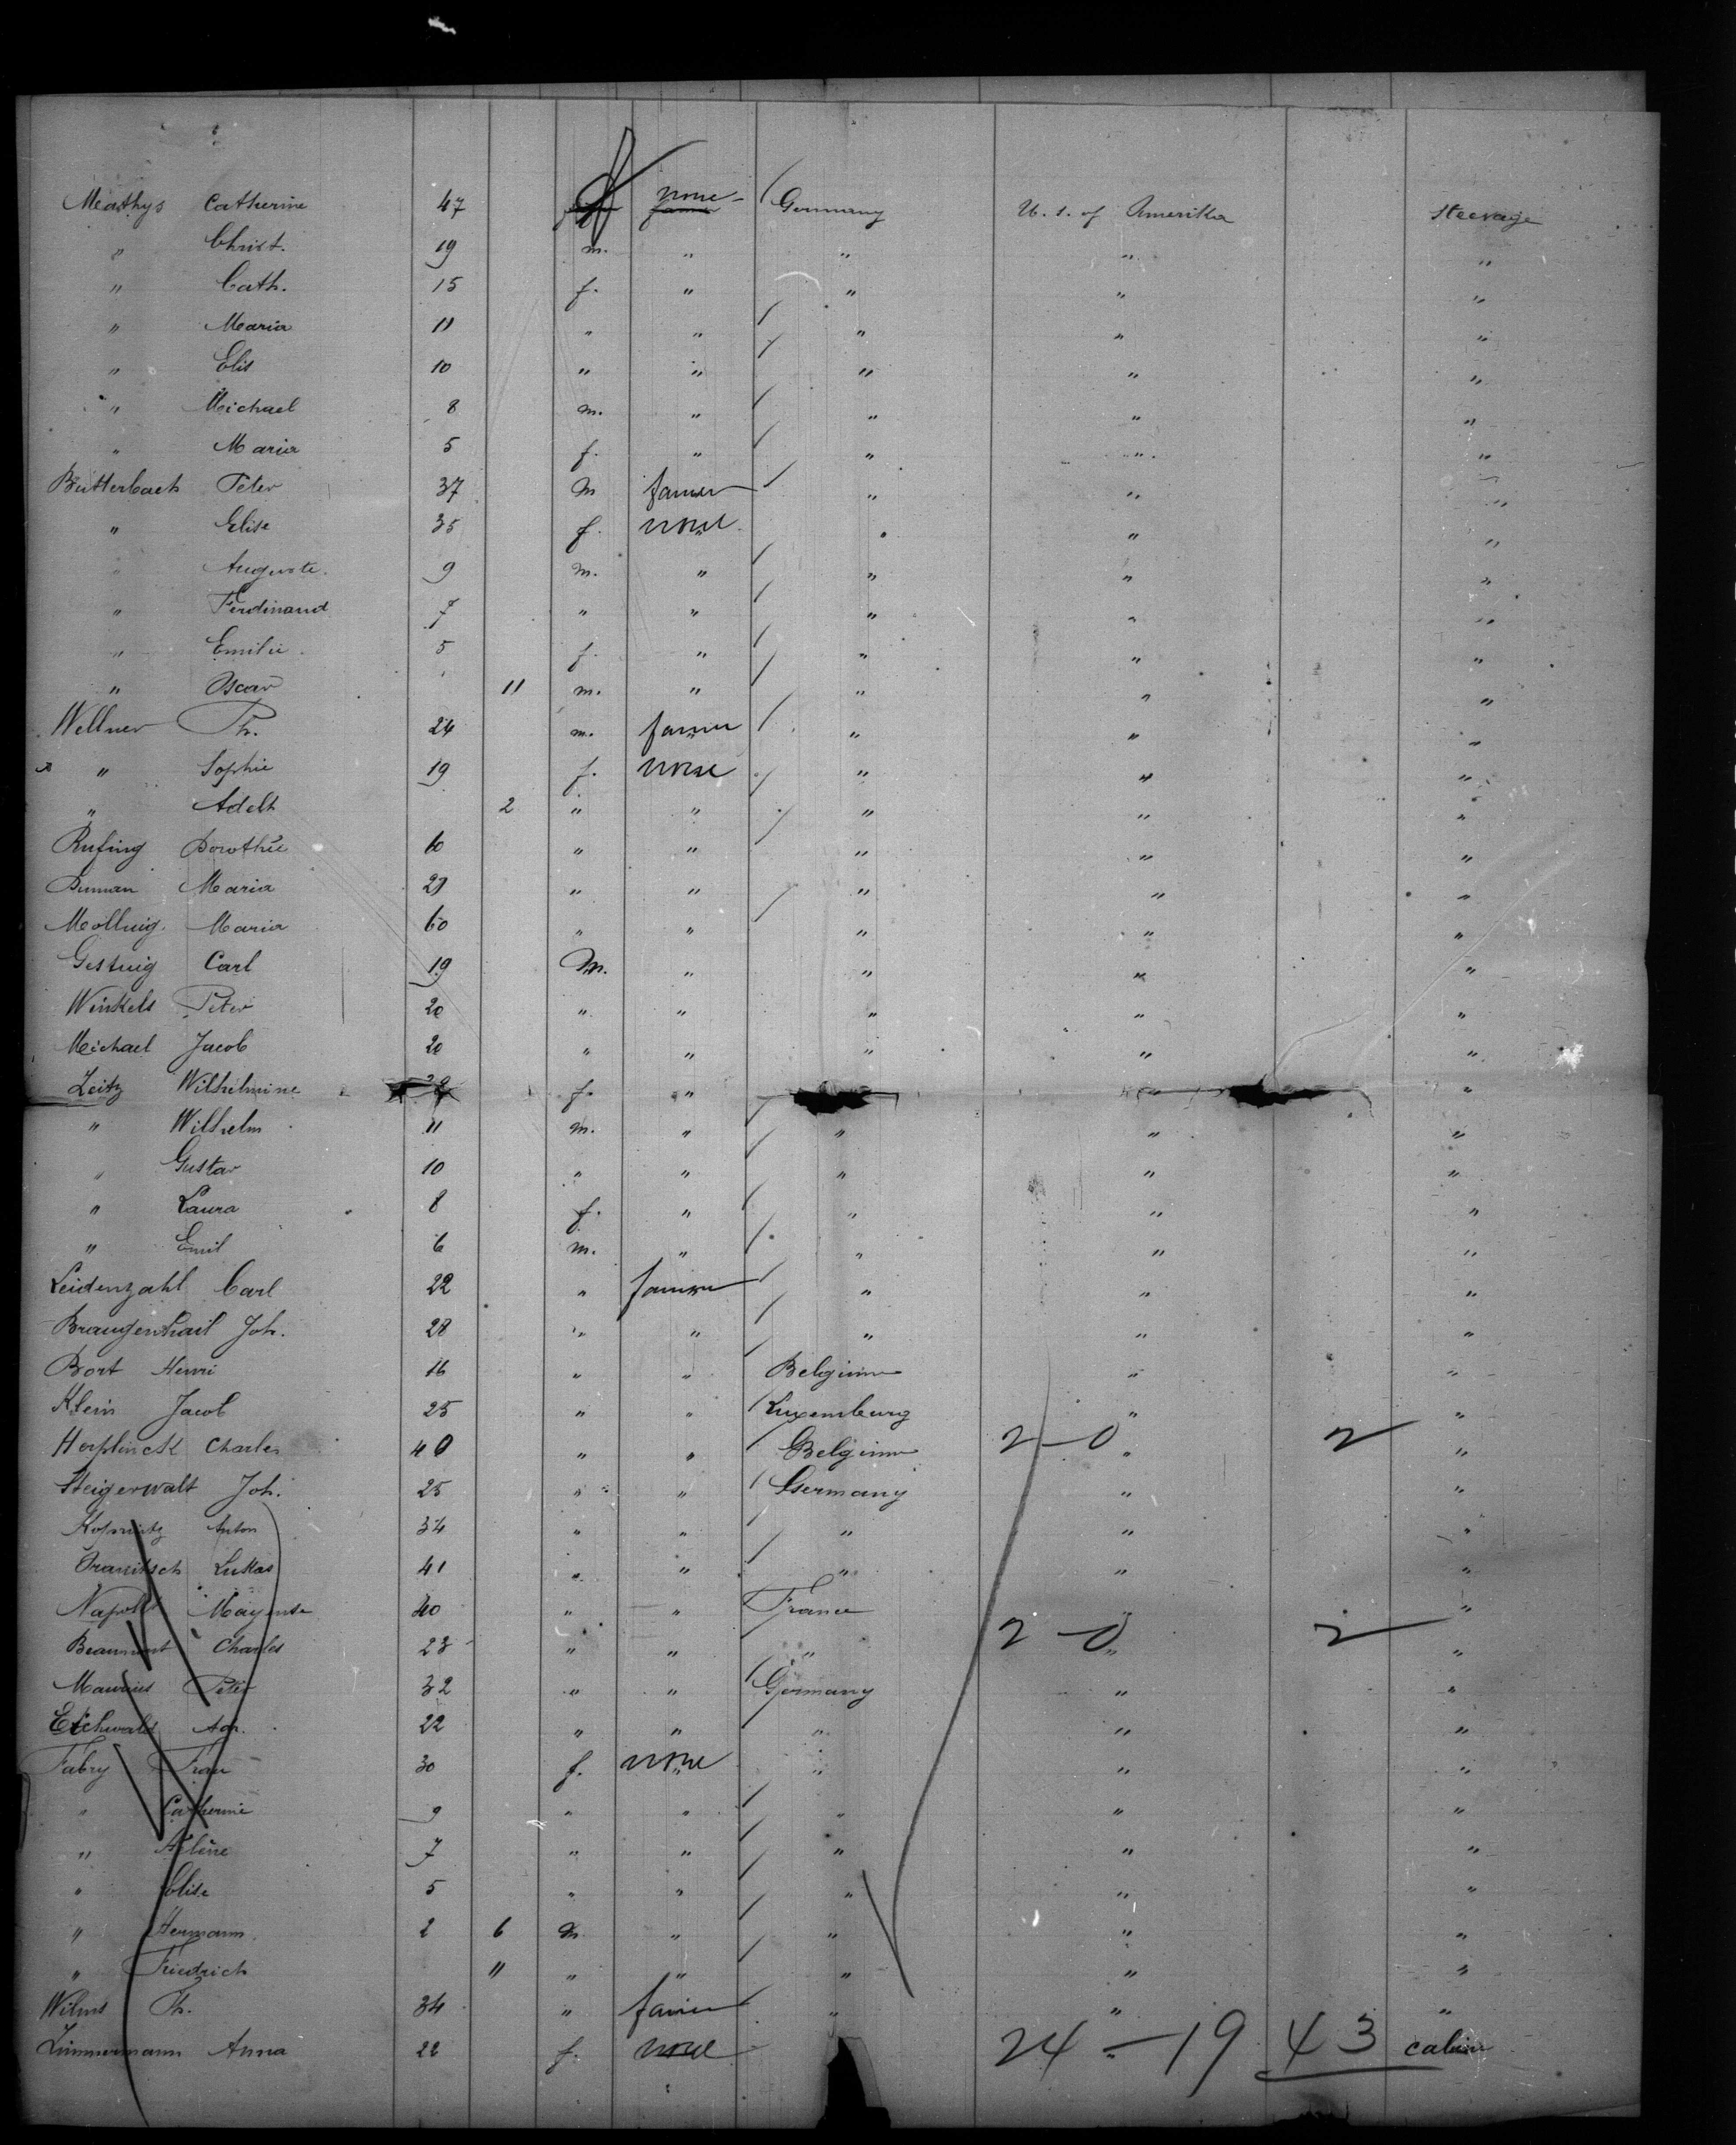 Mathys Catherine 47 f none farmer Germany U. S. of Amerika steerage
" Christ. 19 m. " " " "
" Cath. 15 f. " " " "
" Maria 11 " " " " "
" Elis 10 " " " " "
" Michael 8 m. " " " "
" Maria 5 f. " " " "
Butterbach Peter 37 m farmer " " "
" Elise 35 f. none " " "
" Auguste. 9 m. " " " "
" Ferdinand 7 " " " " "
" Emilie 5 f. " " " "
" Oscar 11 m. " " " "
Wellner Th. 24 m. farmer " " "
" Sophie 19 f. none " " "
" Adelh 2 " " " " "
Rufing Dorothée 60 " " " " "
Maria 29 " " " " "
Molling Maria 60 " " " " "
Carl 19 m. " " " "
Winkels Peter 20 " " " " "
Michael Jacob 20 " " " " "
Zeitz Wilhelmine f. " " "
" Wilhelm 11 m. " " " "
" Gustav 10 " " " " "
" Laura 8 f. " " " "
" Emil 6 m. " " " "
Leidenzahl Carl 22 " farmer " " "
Joh. 28 " " " " "
Bort Henri 16 " " Belgium " "
Klein Jacob 25 " " Luxemburg " "
Charles 40 " " Belgium 2-0 " 2 "
Steigerwalt Joh. 25 " " Germany " "
Anton 34 " " " " "
Lukas 41 " " " " "
40 " " France " "
Beaumont Charles 23 " " " 2-0 " 2 "
Peter 32 " " Germany " "
Eichwald 22 " " " " "
Fabry Frau 30 f. none " " "
" Catherine 9 " " " " "
" 7 " " " " "
" Elise 5 " " " " "
" Hermann 2 6 m " " " "
" Friedrich 11 " " " " "
Wilms Th. 34 " farmer " " "
Zimmermann Anna 22 f. none 24 - 19 43 cabin